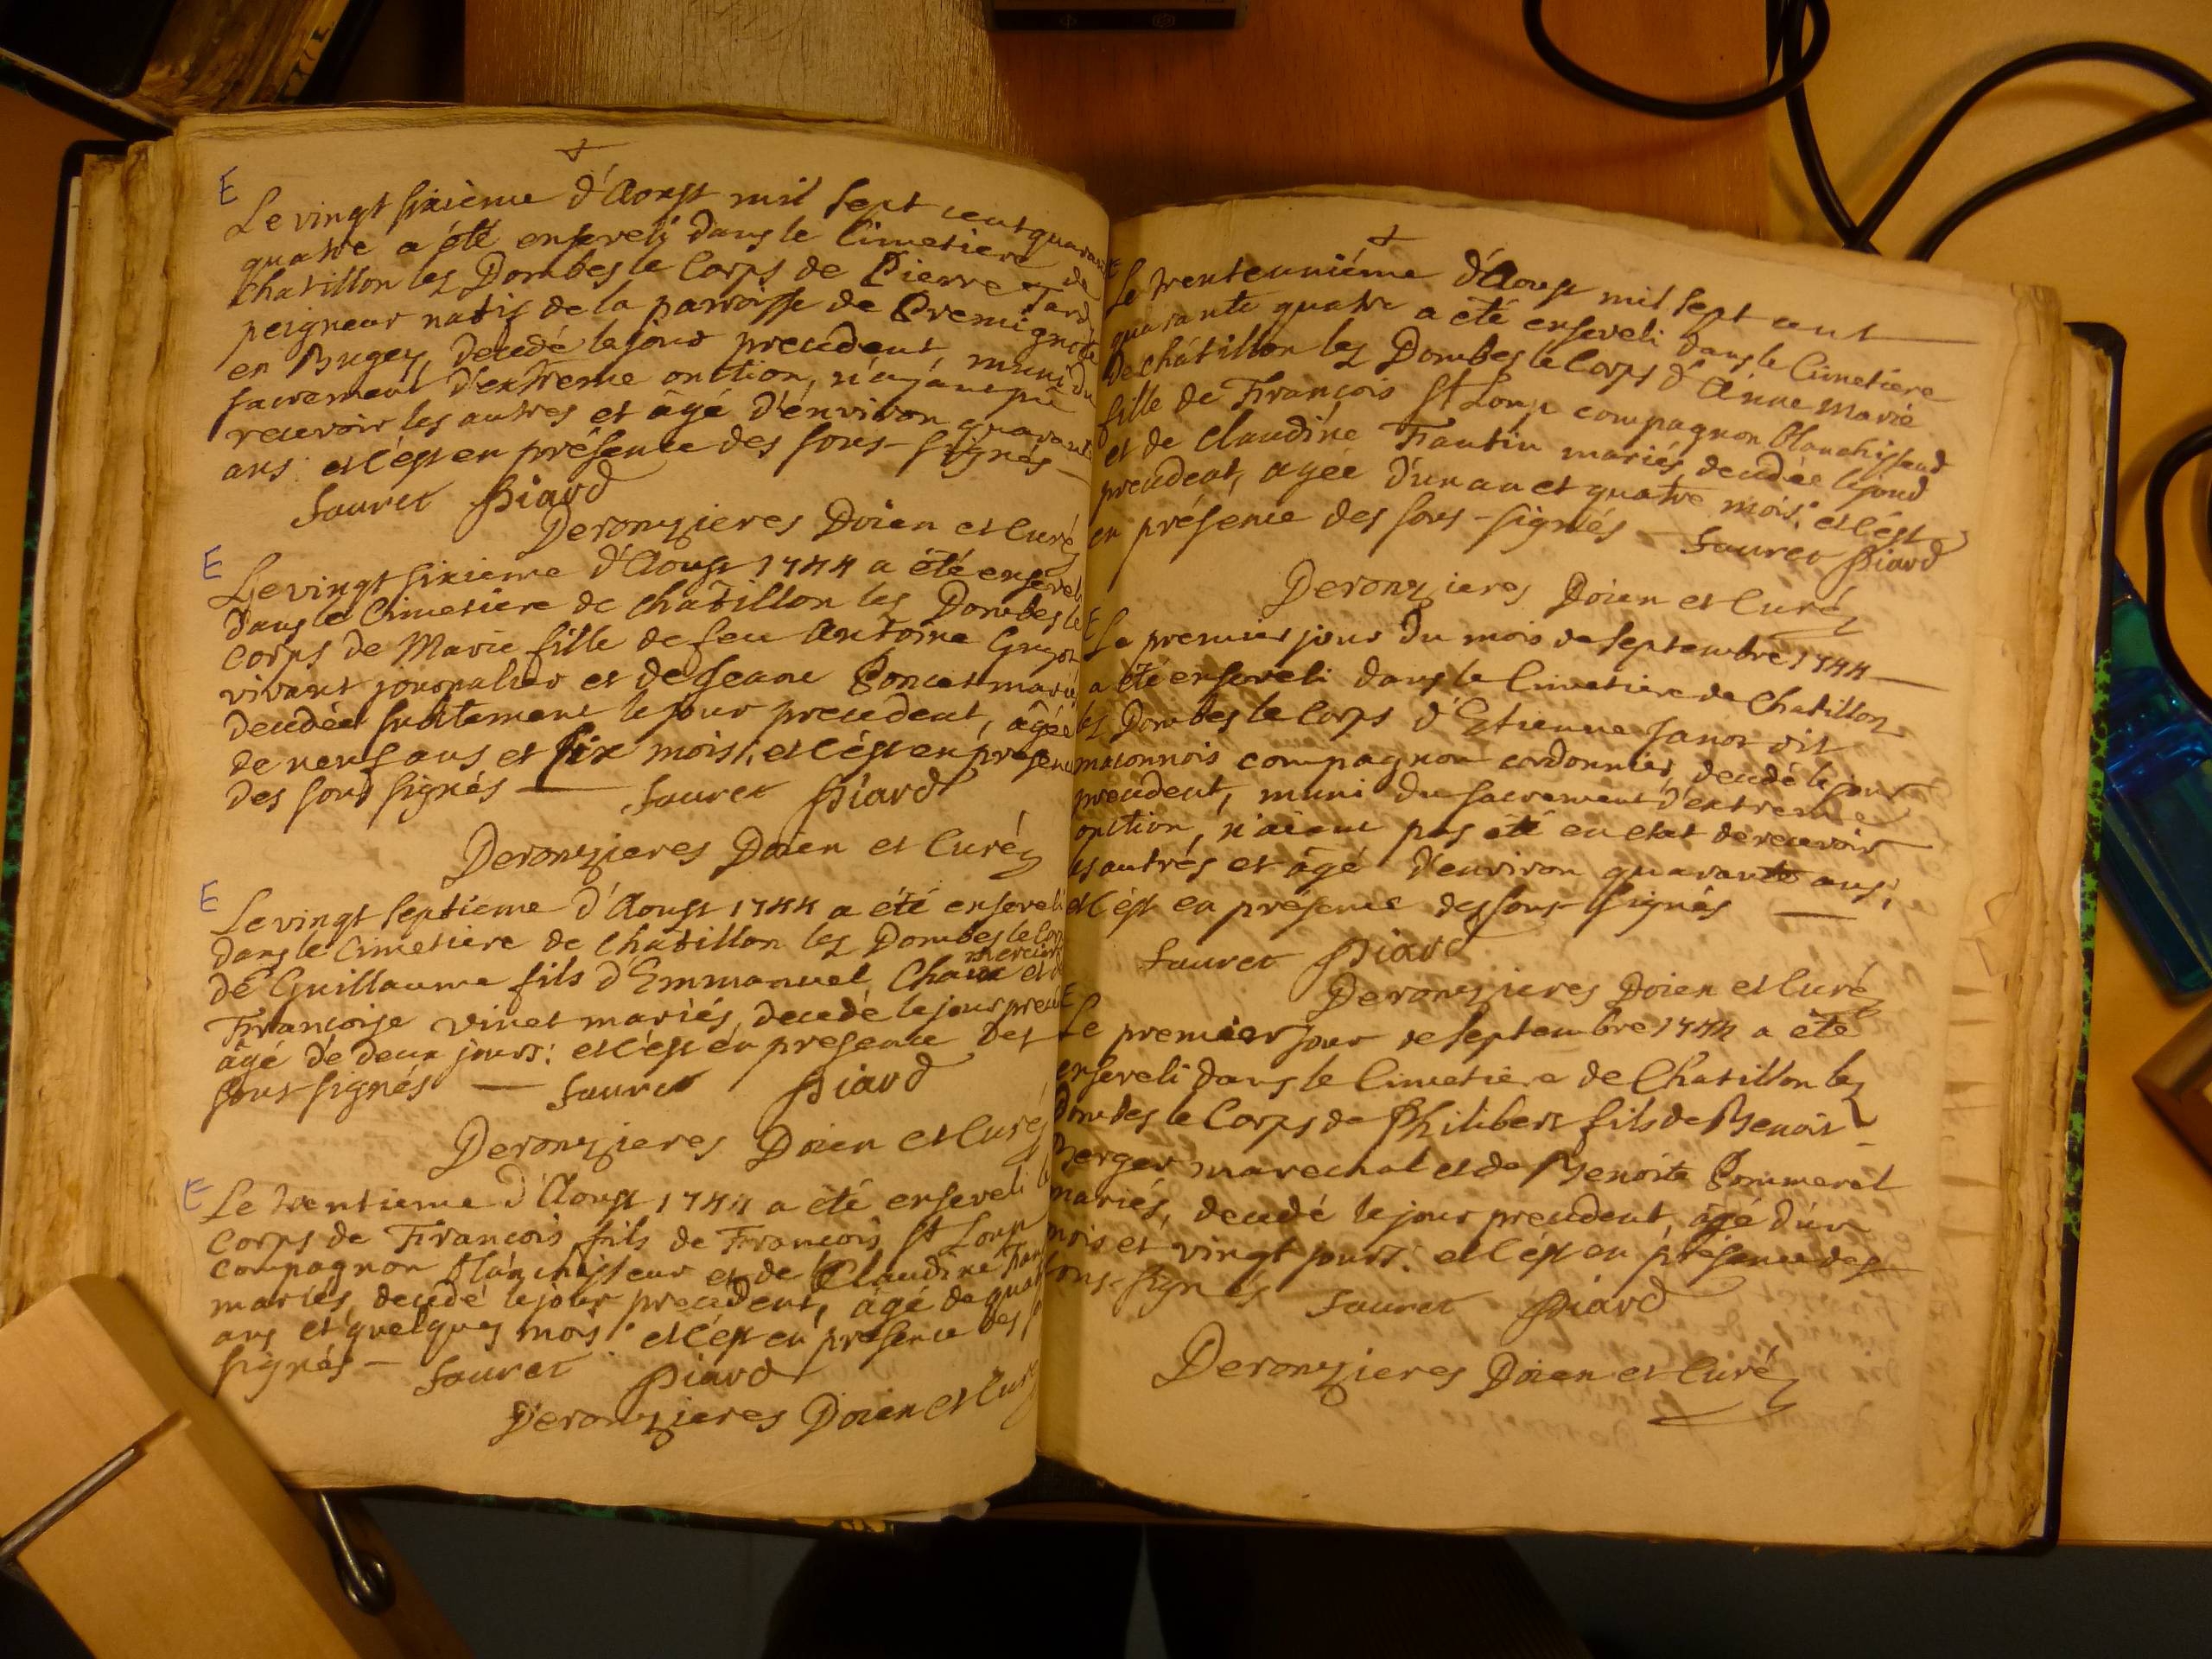 E
Le vingt sixième d'Aoust mil sept cent quaran
quatre a été enseveli dans le Cimetiere de
Chatillon les Dombes le Corps de Pierre Tardy
peigneur natif de la parroisse de Premignole
en Bugey, decedé le jour precedent, muni du
sacrement d'extreme onction, n'ayant pu
recevoir les autres et âgé d'environ quarante
ans et c'est en présence des sous-signés
Sauret Piard
Deronzieres Doien et Curé
E
Le vingt sixieme d'Aoust 1744 a été enseveli
dans le Cimetiere de chatillon les Dombes le
corps de Marie fille de feu Antoine Guyot
vivant journalier et de Jeane Poncet mariés
decedée subitement le jour precedent, âgée
de neuf ans et six mois, et c'est en presence
des sous signés — Sauret Piard
Deronzieres Doien et Curé
E
Le vingt septieme d'Aoust 1744 a été enseveli
dans le Cimetiere de chatillon les Dombes le Cor
mercier
de Guillaume fils d'Emmanuel Chaux et d
Françoise Vinet mariés, decedé le jour preced
âgé de deux jours: et c'est en presence des
sous-signés — Sauret Piard
Deronzieres Doien et Curé
E
Le trentieme d'Aoust 1744 a été enseveli le
Corps de François fils de François St Loup
compagnon blanchisseur et de Claudine Fan
mariés, decedé le jour precedent, âgé de quat
ans et quelques mois. et c'est en presence des s
signés — Sauret Piard
Deronzieres Doien et Curé
E
Le trenteunième d'Aoust mil sept cent —
quarante quatre a été enseveli dans le Cimetiere
de châtillon les Dombes le Corps d'Anne Marie
fille de François St Loup compagnon blanchisseur
et de claudine Fantin mariés, decedée le jour
precedent, agée d'un an et quatre mois. et c'est
en présence des sous-signés — Sauret Piard
Deronzieres Doien et Curé
E
Le premier jour du mois de septembre 1744 —
a été enseveli dans le Cimetiere de Chatillon
les Dombes le Corps d'Etienne Janot dit
maconnois compagnon cordonnier, decedé le jour
precedent, muni du sacrement d'extreme
onction, n'aiant pas été en etat de recevoir
les autrés et âgé d'environ quarante ans,
et c'est en presence des sous-signés —
Sauret Piard
Deronzieres Doien et Curé
E
Le premier jour de septembre 1744 a été
enseveli dans le Cimetiere de Chatillon les
Dombes le Corps de Philibert fils de Benoit
Berger marechal et de Benoite Pommeret
mariés, decedé le jour precedent, âgé d'un
mois et vingt jours. et c'est en présence des
sous-signés Sauret Piard
Deronzieres Doien et Curé